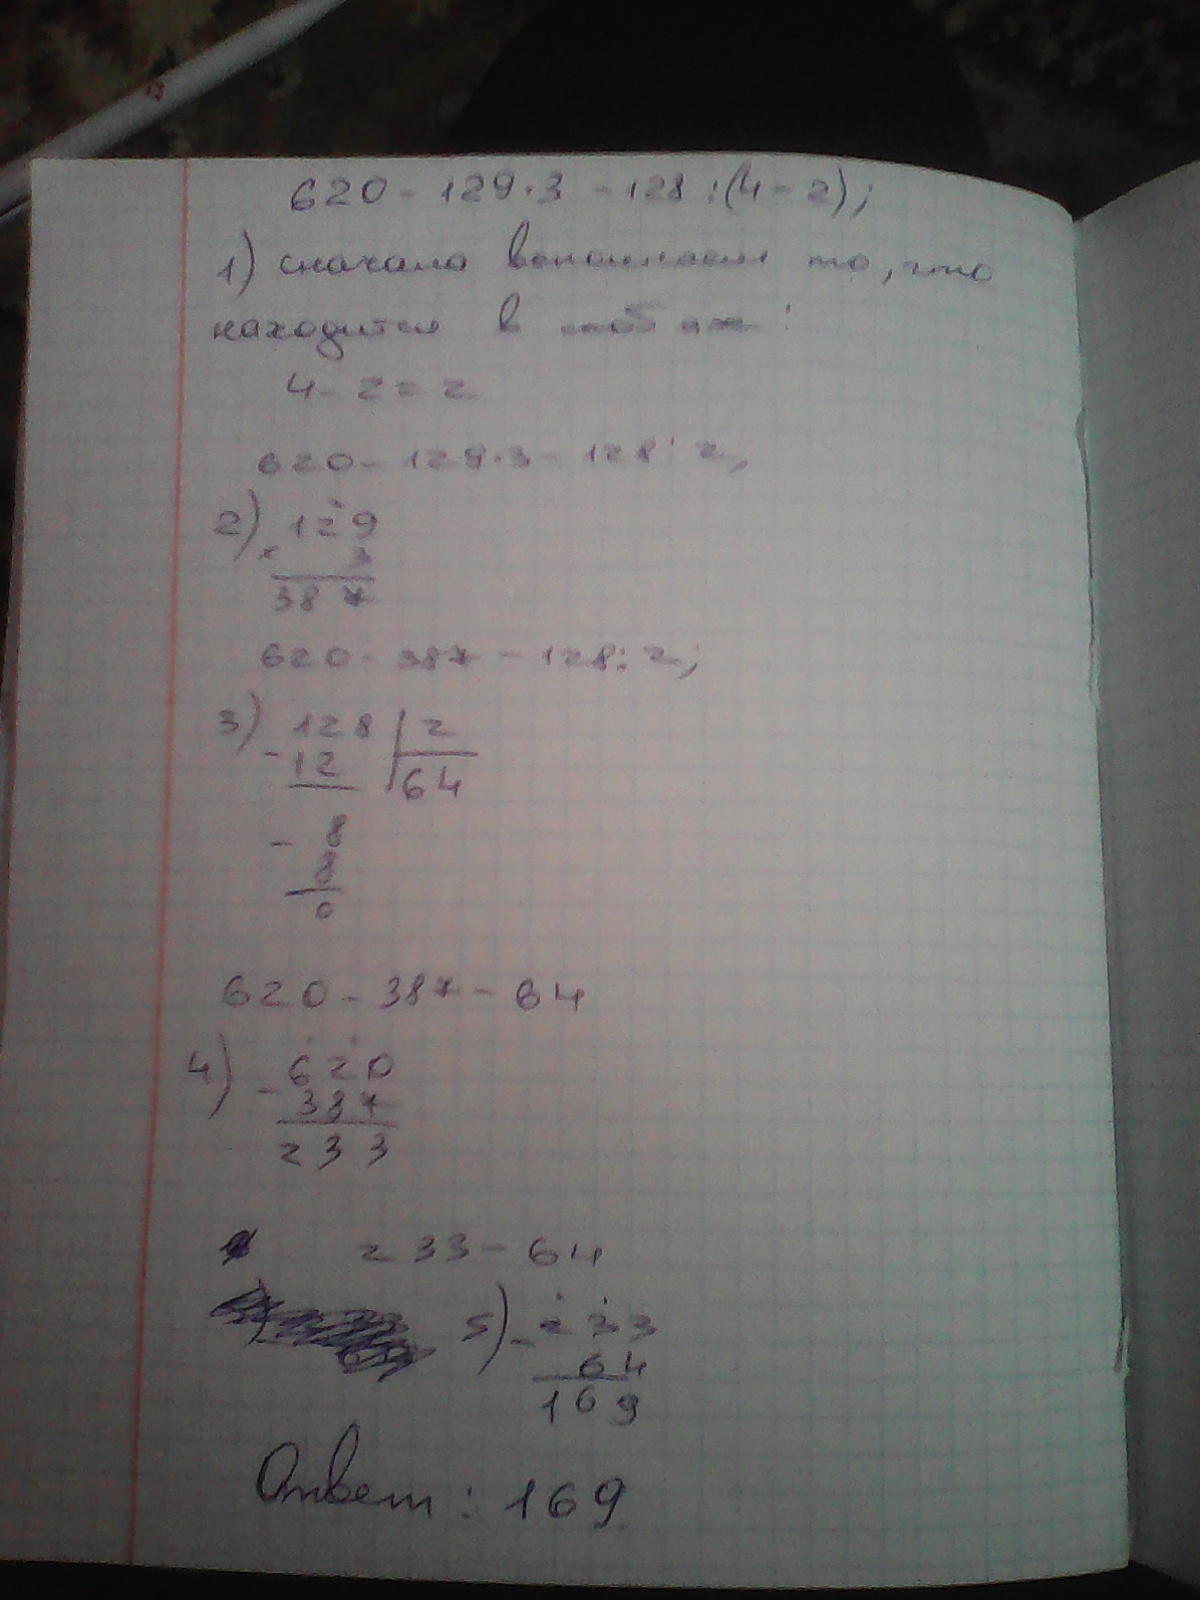 620 - 129·3 - 128 : (4 - 2);
1) сначала то, что
находится в
4 - 2 = 2
620 - 129·3 - 128 : 2;
2) 129
× 3
387
620 - 387 - 128 : 2;
3) 128 | 2
- 12 | 64
- 8
8
0
620 - 387 - 64
4) - 620
387
233
233 - 64
5) - 233
64
169
Ответ: 169